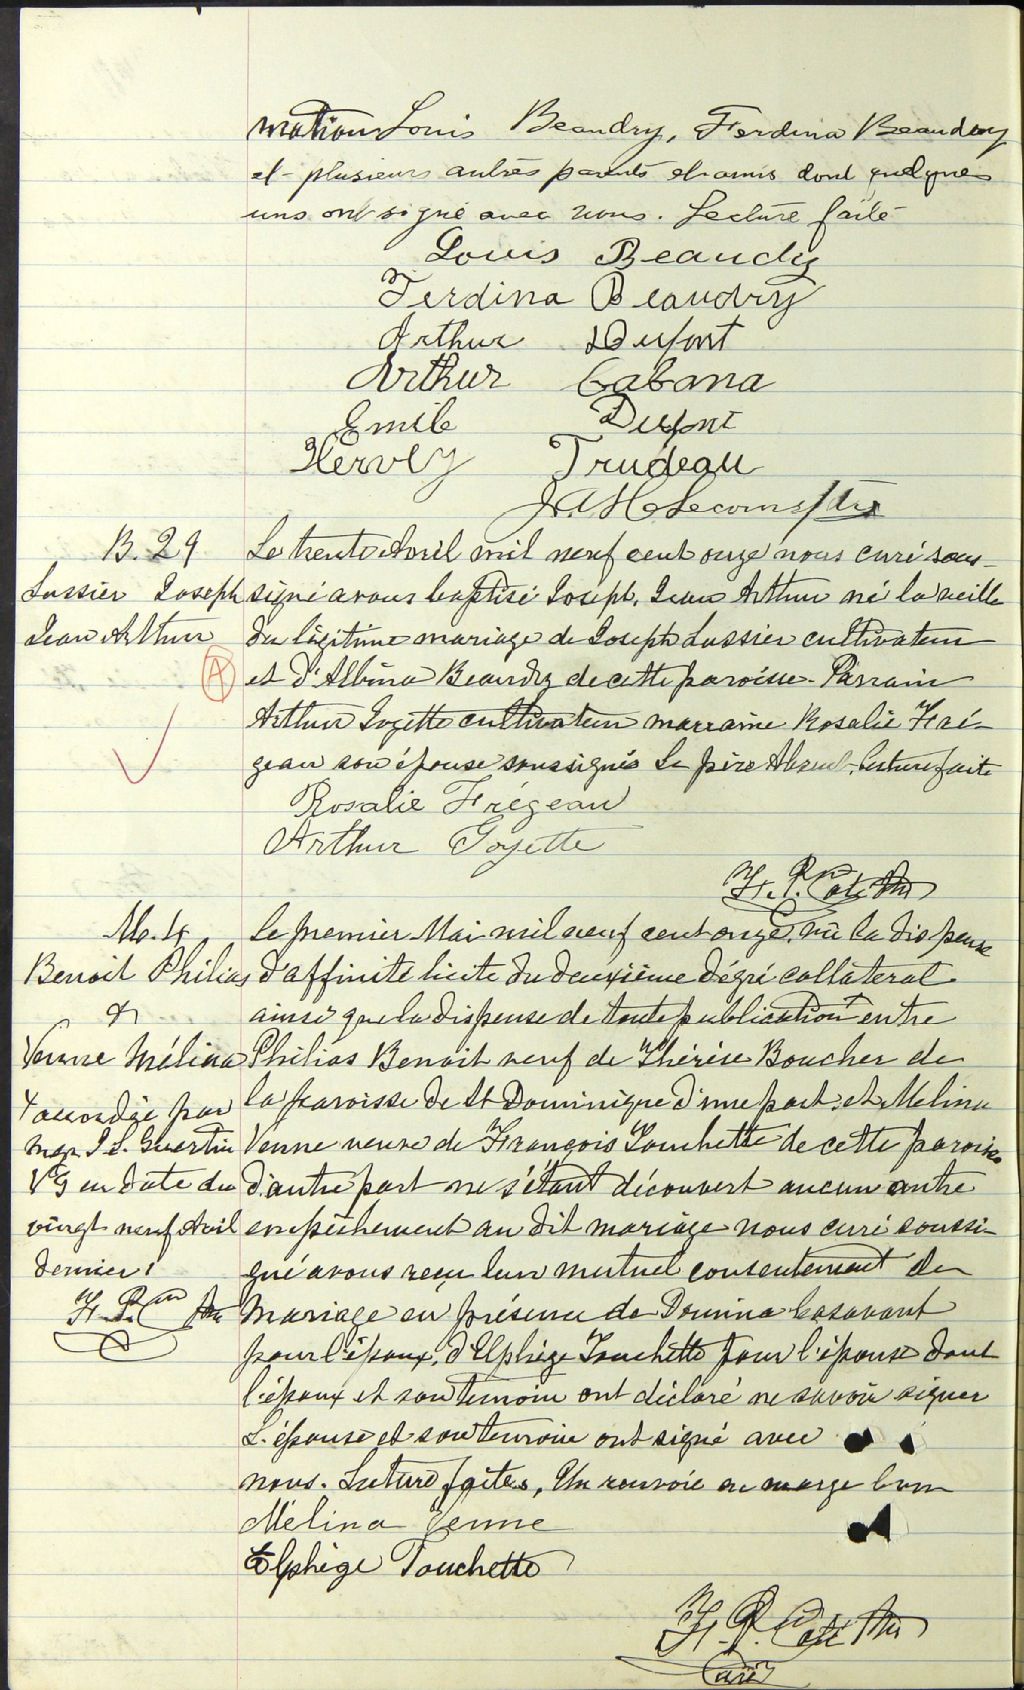 mation Louis Beaudry, Ferdina Beaudry
et plusieurs autres parents et amis dont quelques
uns ont signé avec nous. Lecture faite
Louis Beaudry
Ferdina Beaudry
Arthur Dupont
Arthur Cabana
Emile Dupont
Hervey Trudeau
B. 29
Lussier Joseph
Jean Arthur
A
Le trente Avril mil neuf cent onze nous curé sous-
signé avons baptisé Joseph, Jean Arthur né la veille
du légitime mariage de Joseph Lussier cultivateur
et d'Albina Beaudry de cette paroisse. Parrain
Arthur Goyette cultivateur marraine Rosalie Fré-
geau son épouse soussignés Le père Absent. Lecture faite
Rosalie Frégeau
Arthur Goyette
H. P. Coté Ptre
M. 4
Benoit Philias
&
Venne Mélina
+ accordée par
mgr. Guertin
V G en date du
vingt neuf Avril
dernier
Le premier Mai mil neuf cent onze, vu la dispense
d'affinité licite du deuxième dégré collatéral
ainsi que la dispense de toute publication + entre
Philias Benoit veuf de Thérèse Boucher de
la paroisse de St Dominique d'une part, et Melina
Venne veuve de François Touchette de cette paroisse
d'autre part ne s'étant découvert aucun autre
empêchement au dit mariage nous curé soussi-
gné avons reçu leur mutuel consentement de
mariage en présence de Domina Casavant
pour l'époux, d'Elphège Touchette pour l'épouse dont
l'époux et son temoin ont déclaré ne savoir signer
L'épouse et son temoin ont signé avec
nous. Lecture faite, Un renvoie en marge bon
Mélina Venne
Elphège Touchette
H. P. Coté Ptre
Curé